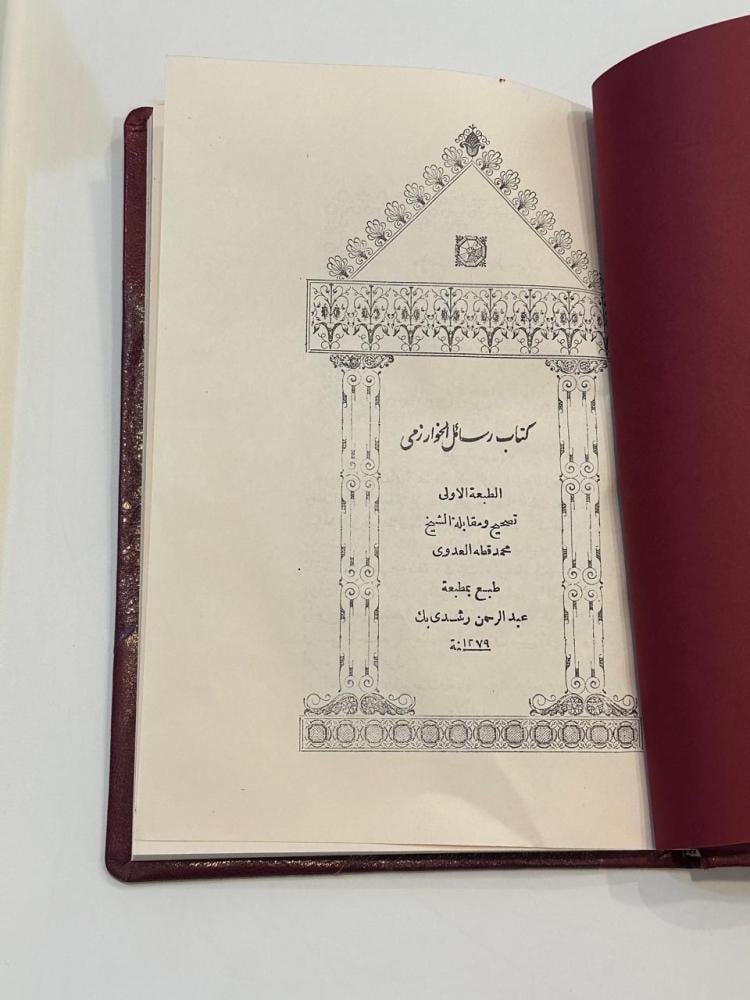 كتاب رسائل الخوارزمى
الطبعة الاولى
تصحيح ومقابلة الشيخ
محمد قطه العدوى
طبع بمطبعة
عبد الرحمن رشدى بك
سنة ١٢٧٩